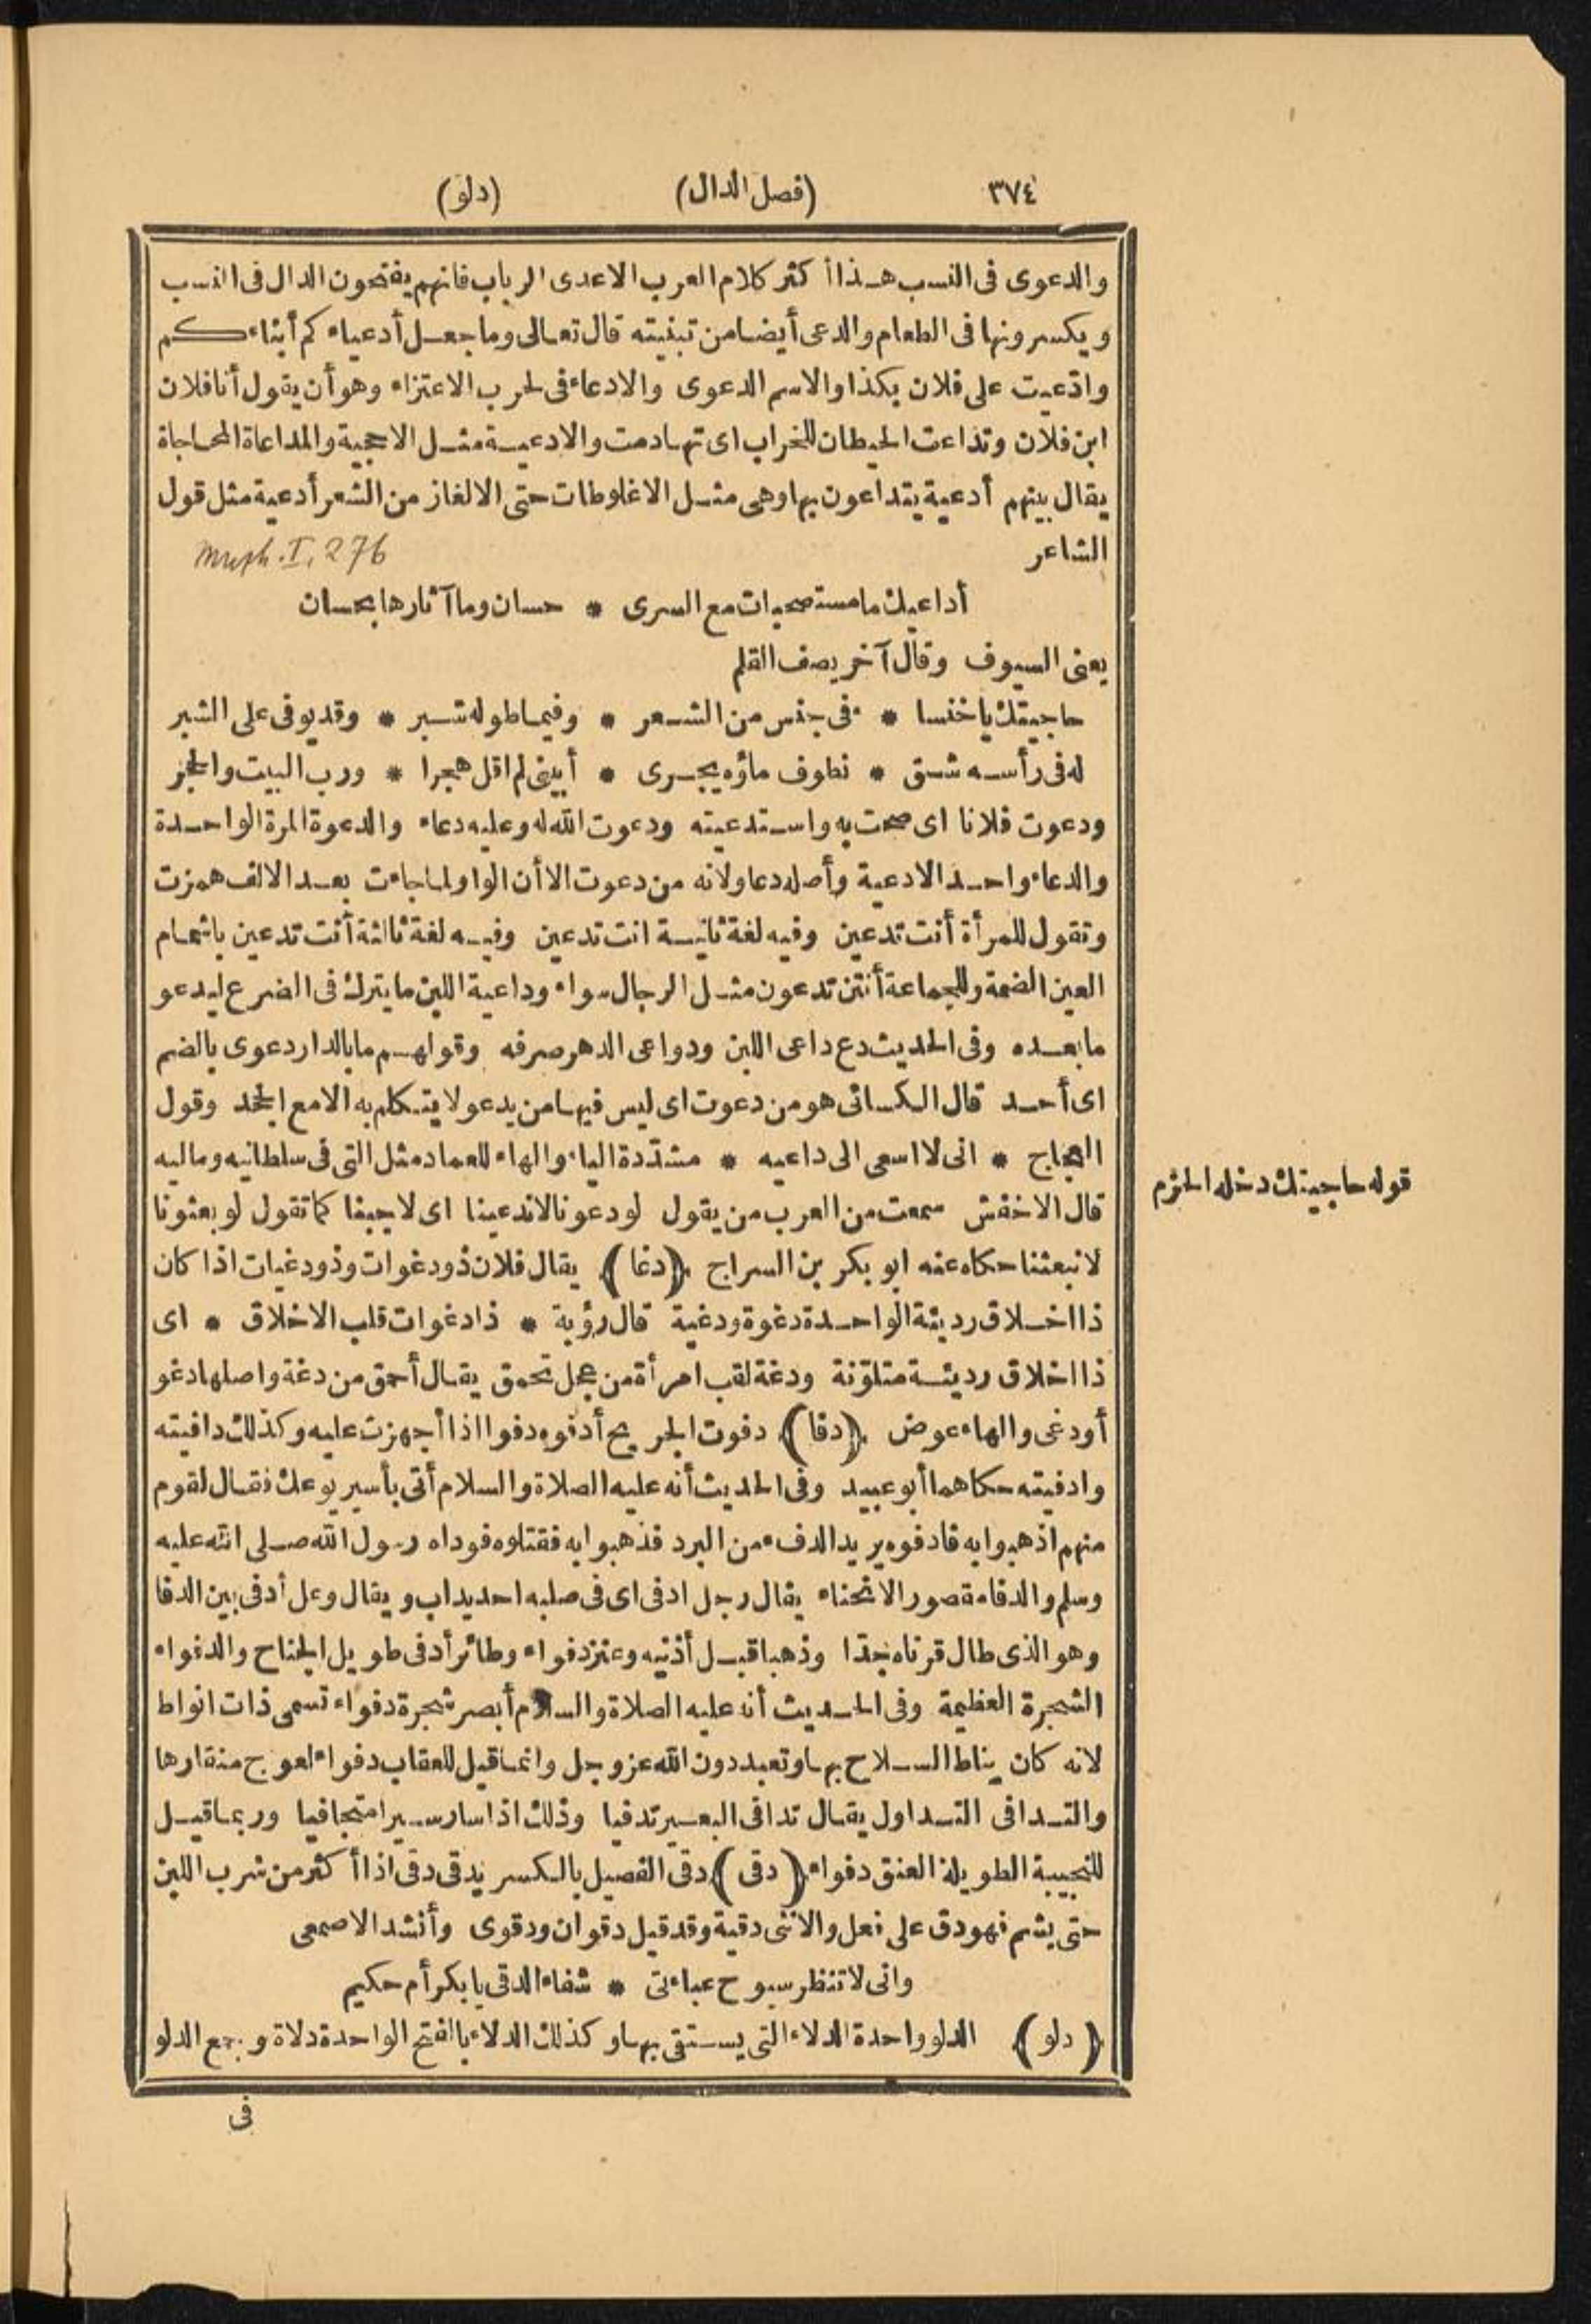 ٣٧٤ (فصل الدال) (دلو)
والدعوى فى النسب هذا أكثر كلام العرب الاعدى الرباب فانهم يفتحون الدال فى النسب
ويكسرونها فى الطعام والدعى أيضا من تبنيته قال تعالى وما جعل أدعياءكم أبناءكم
وادّعيت على فلان بكذا والاسم الدعوى والادعاء فى الحرب الاعتزاء وهو أن يقول أنا فلان
ابن فلان وتداعت الحيطان للخراب اى تهادمت والادعية مثل الاحجية والمداعاة المحاجاة
يقال بينهم أدعية يتداعون بها وهى مثل الاغلوطات حتى الالغاز من الشعر أدعية مثل قول
الشاعر
I, 276
أداعيك ما مستصحبات مع السرى * حسان وما آثارها بحسان
يعنى السيوف وقال آخر يصف القلم
حاجيتك يا خنسا * ء فى جنس من الشعر * وفيما طوله شبر * وقد يوفى على الشبر
له فى رأسه شق * نطوف ماؤه يجرى * أبينى لم اقل هجرا * ورب البيت والحجر
ودعوت فلانا اى صحت به واستدعيته ودعوت الله له وعليه دعاء والدعوة المرة الواحدة
والدعاء واحد الادعية وأصله دعاو لانه من دعوت الا أن الواو لما جاءت بعد الالف همزت
وتقول للمرأة أنت تدعين وفيه لغة ثانية انت تدعين وفيه لغة ثالثة أنت تدعين باشمام
العين الضمة وللجماعة أنتن تدعون مثل الرجال سواء وداعية اللبن ما يترك فى الضرع ليدعو
ما بعده وفى الحديث دع داعى اللبن ودواعى الدهر صرفه وقولهم ما بالدار دعوى بالضم
اى أحد قال الكسائى هو من دعوت اى ليس فيها من يدعو لا يتكلم به الا مع الجحد وقول
العجاج * انى لا اسعى الى داعيه * مشدّدة الياء والهاء للعماد مثل التى فى سلطانيه وماليه
قوله حاجيتك دخله الخزم
قال الاخفش سمعت من العرب من يقول لو دعونا لاندعينا اى لاجبنا كما تقول لو بعثونا
لانبعثنا حكاه عنه ابو بكر بن السراج ﴿دغا﴾ يقال فلان ذو دغوات وذو دغيات اذا كان
ذا اخلاق رديئة الواحدة دغوة ودغية قال رؤبة * ذا دغوات قلب الاخلاق * اى
ذا اخلاق رديئة متلوّنة ودغة لقب امرأة من عجل تحمق يقال أحمق من دغة واصلها دغو
أو دغى والهاء عوض ﴿دفا﴾ دفوت الجريح أدفوه دفوا اذا أجهزت عليه وكذلك دافيته
وادفيته حكاهما أبو عبيد وفى الحديث أنه عليه الصلاة والسلام أتى بأسير يوعك فقال لقوم
منهم اذهبوا به فادفوه يريد الدفء من البرد فذهبوا به فقتلوه فوداه رسول الله صلى الله عليه
وسلم والدفا مقصور الانحناء يقال رجل ادفى اى فى صلبه احديداب ويقال وعل أدفى بين الدفا
وهو الذى طال قرناه جدّا وذهبا قبل أذنيه وعنز دفواء وطائر أدفى طويل الجناح والدفواء
الشجرة العظيمة وفى الحديث أنه عليه الصلاة والسلام أبصر شجرة دفواء تسمى ذات انواط
لانه كان يناط السلاح بها وتعبد دون الله عز وجل وانما قيل للعقاب دفواء لعوج منقارها
والتدافى التداول يقال تدافى البعير تدفيا وذلك اذا سار سيرا متجافيا وربما قيل
للنجيبة الطويلة العنق دفواء ﴿دقى﴾ دقى الفصيل بالكسر يدقى دقى اذا أكثر من شرب اللبن
حتى يشم فهو دق على فعل والانثى دقية وقد قيل دقوان ودقوى وأنشد الاصمعى
وانى لا تنظر سيوح عباءتى * شفاء الدقى يا بكر أم حكيم
﴿دلو﴾ الدلو واحدة الدلاء التى يستقى بها وكذلك الدلاء بالفتح الواحدة دلاة وجمع الدلو
فى